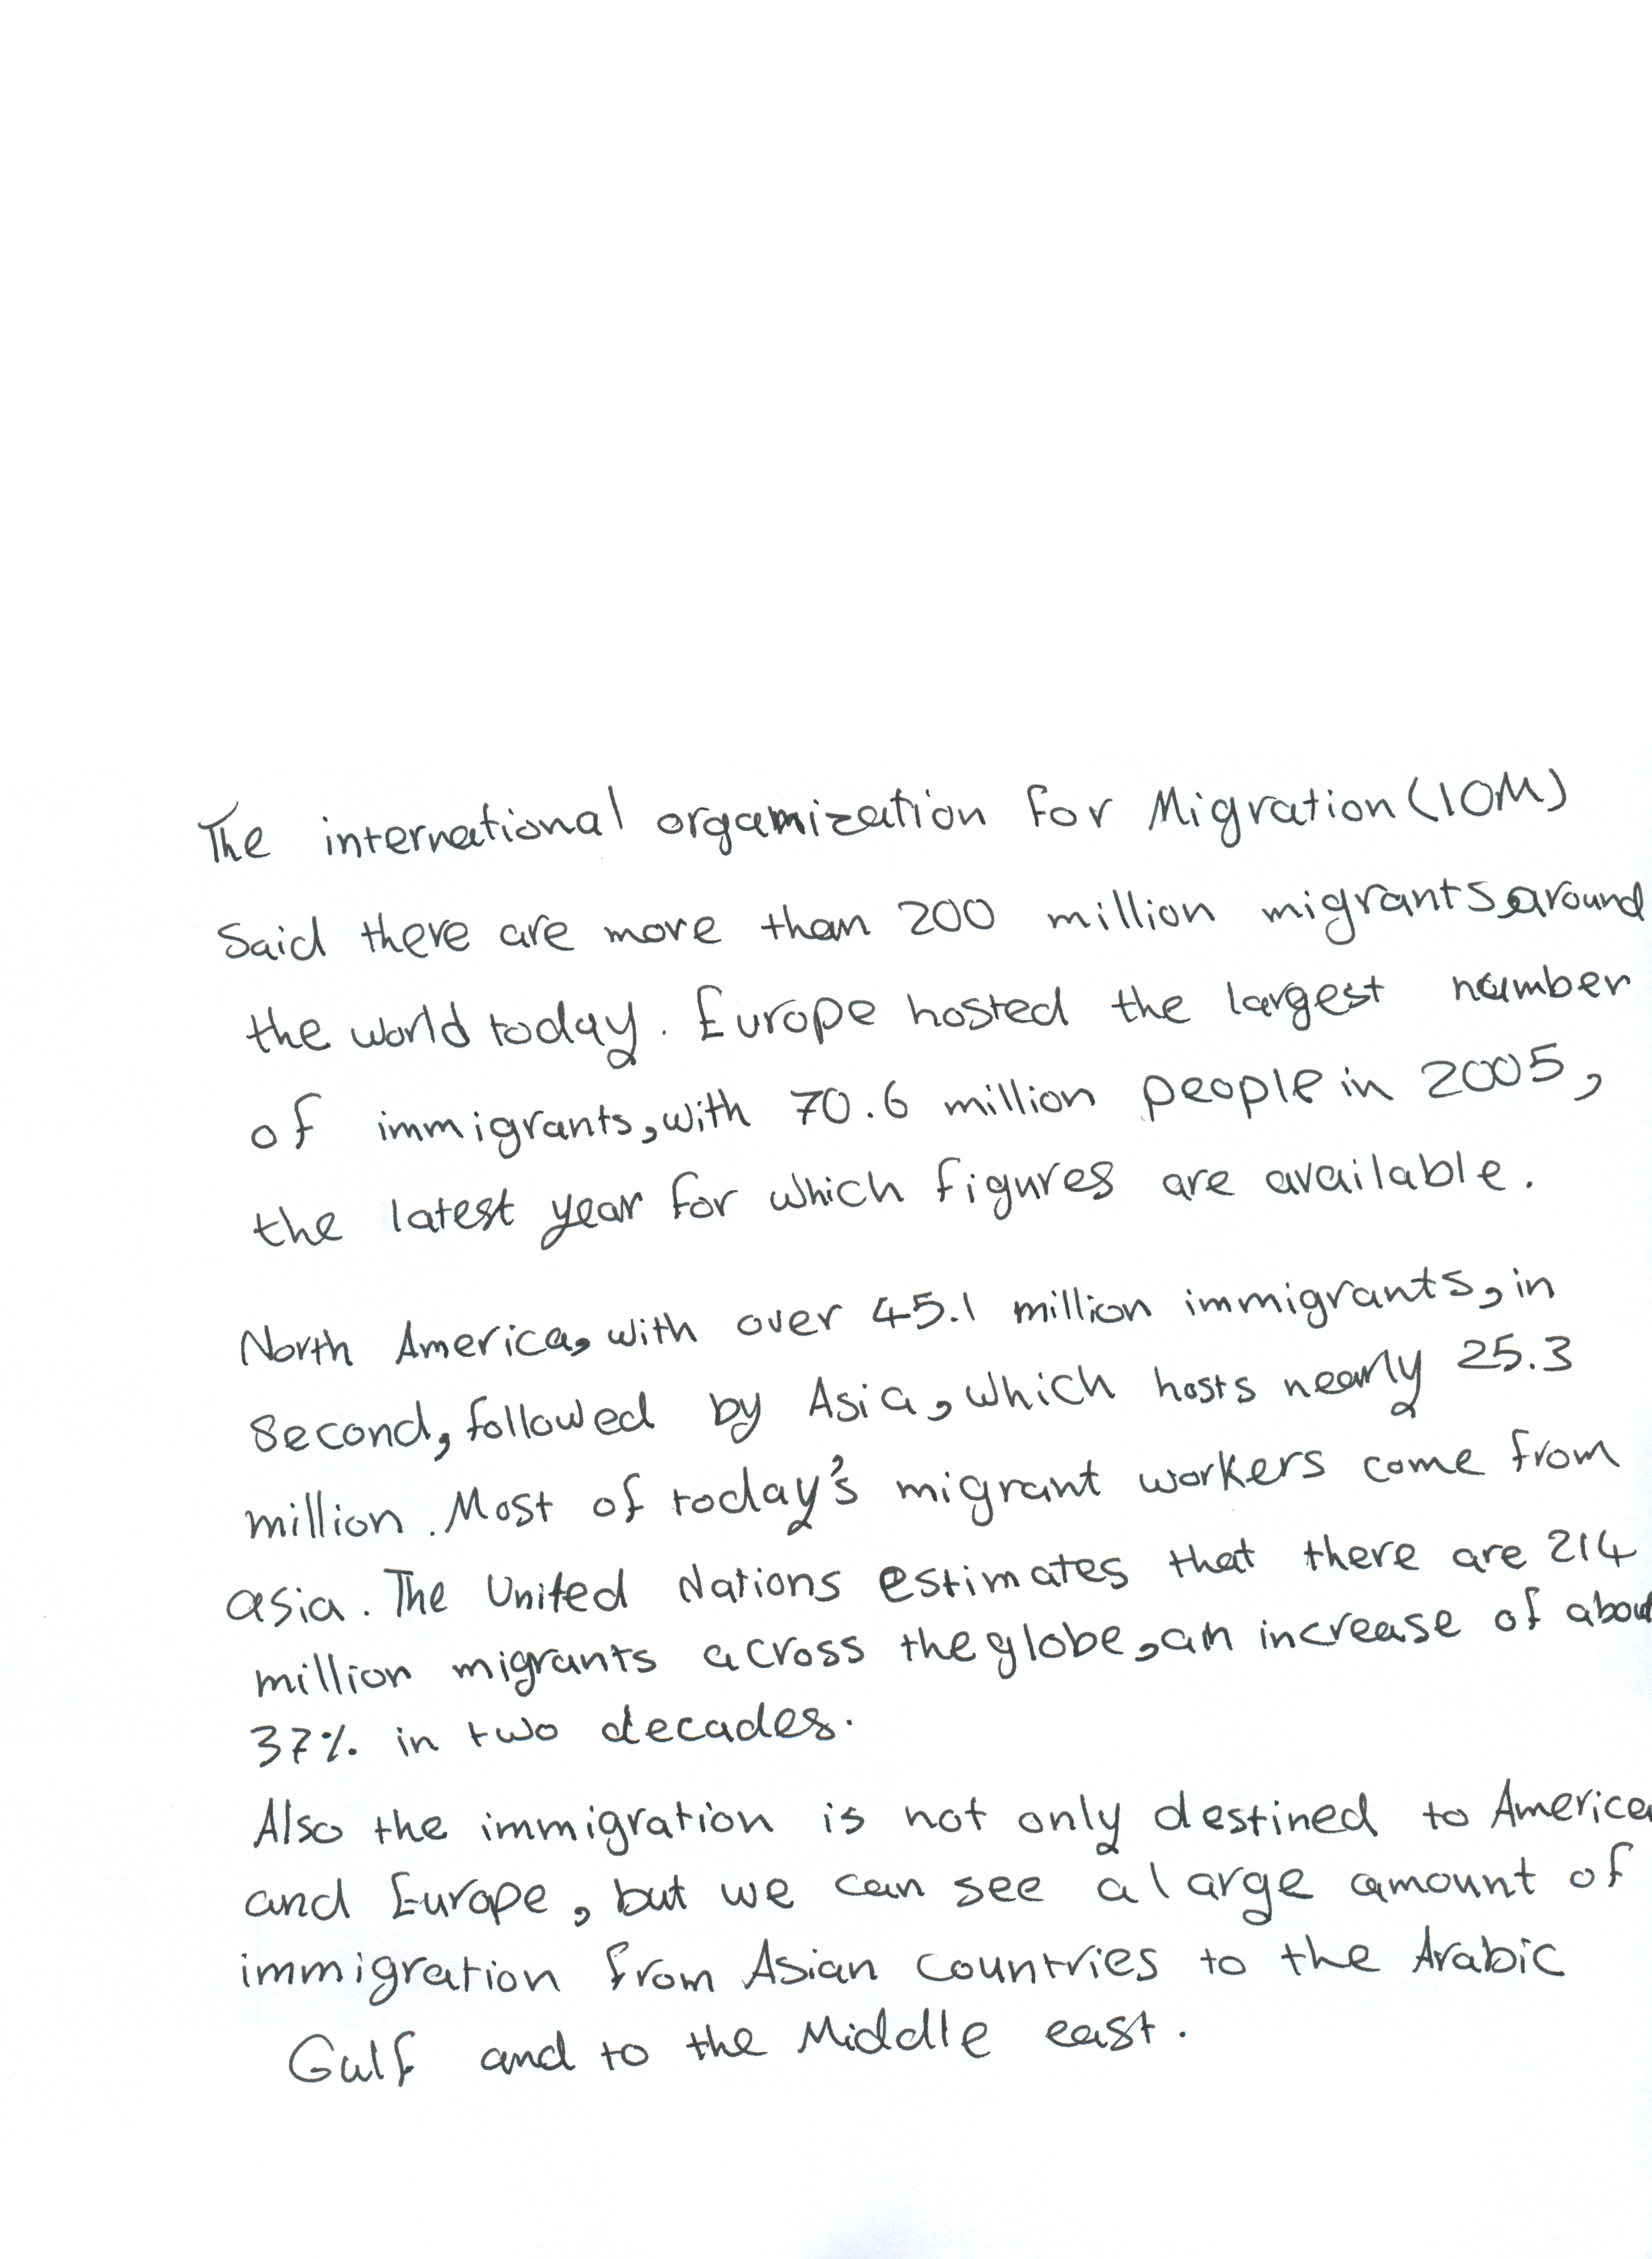 The international organization for Migration (IOM)
Said there are more than 200 million migrants around
the world today. Europe hosted the largest number
of immigrants, with 70.6 million people in 2005,
the latest year for which figures are available.
North America, with over 45.1 million immigrants, in
second, followed by Asia, which hosts nearly 25.3
million. Most of today's migrant workers come from
asia. The United Nations estimates that there are 214
million migrants across the globe, an increase of about
37% in two decades.
Also the immigration is not only destined to America
and Europe, but we can see a large amount of
immigration from Asian countries to the Arabic
Gulf and to the Middle east.